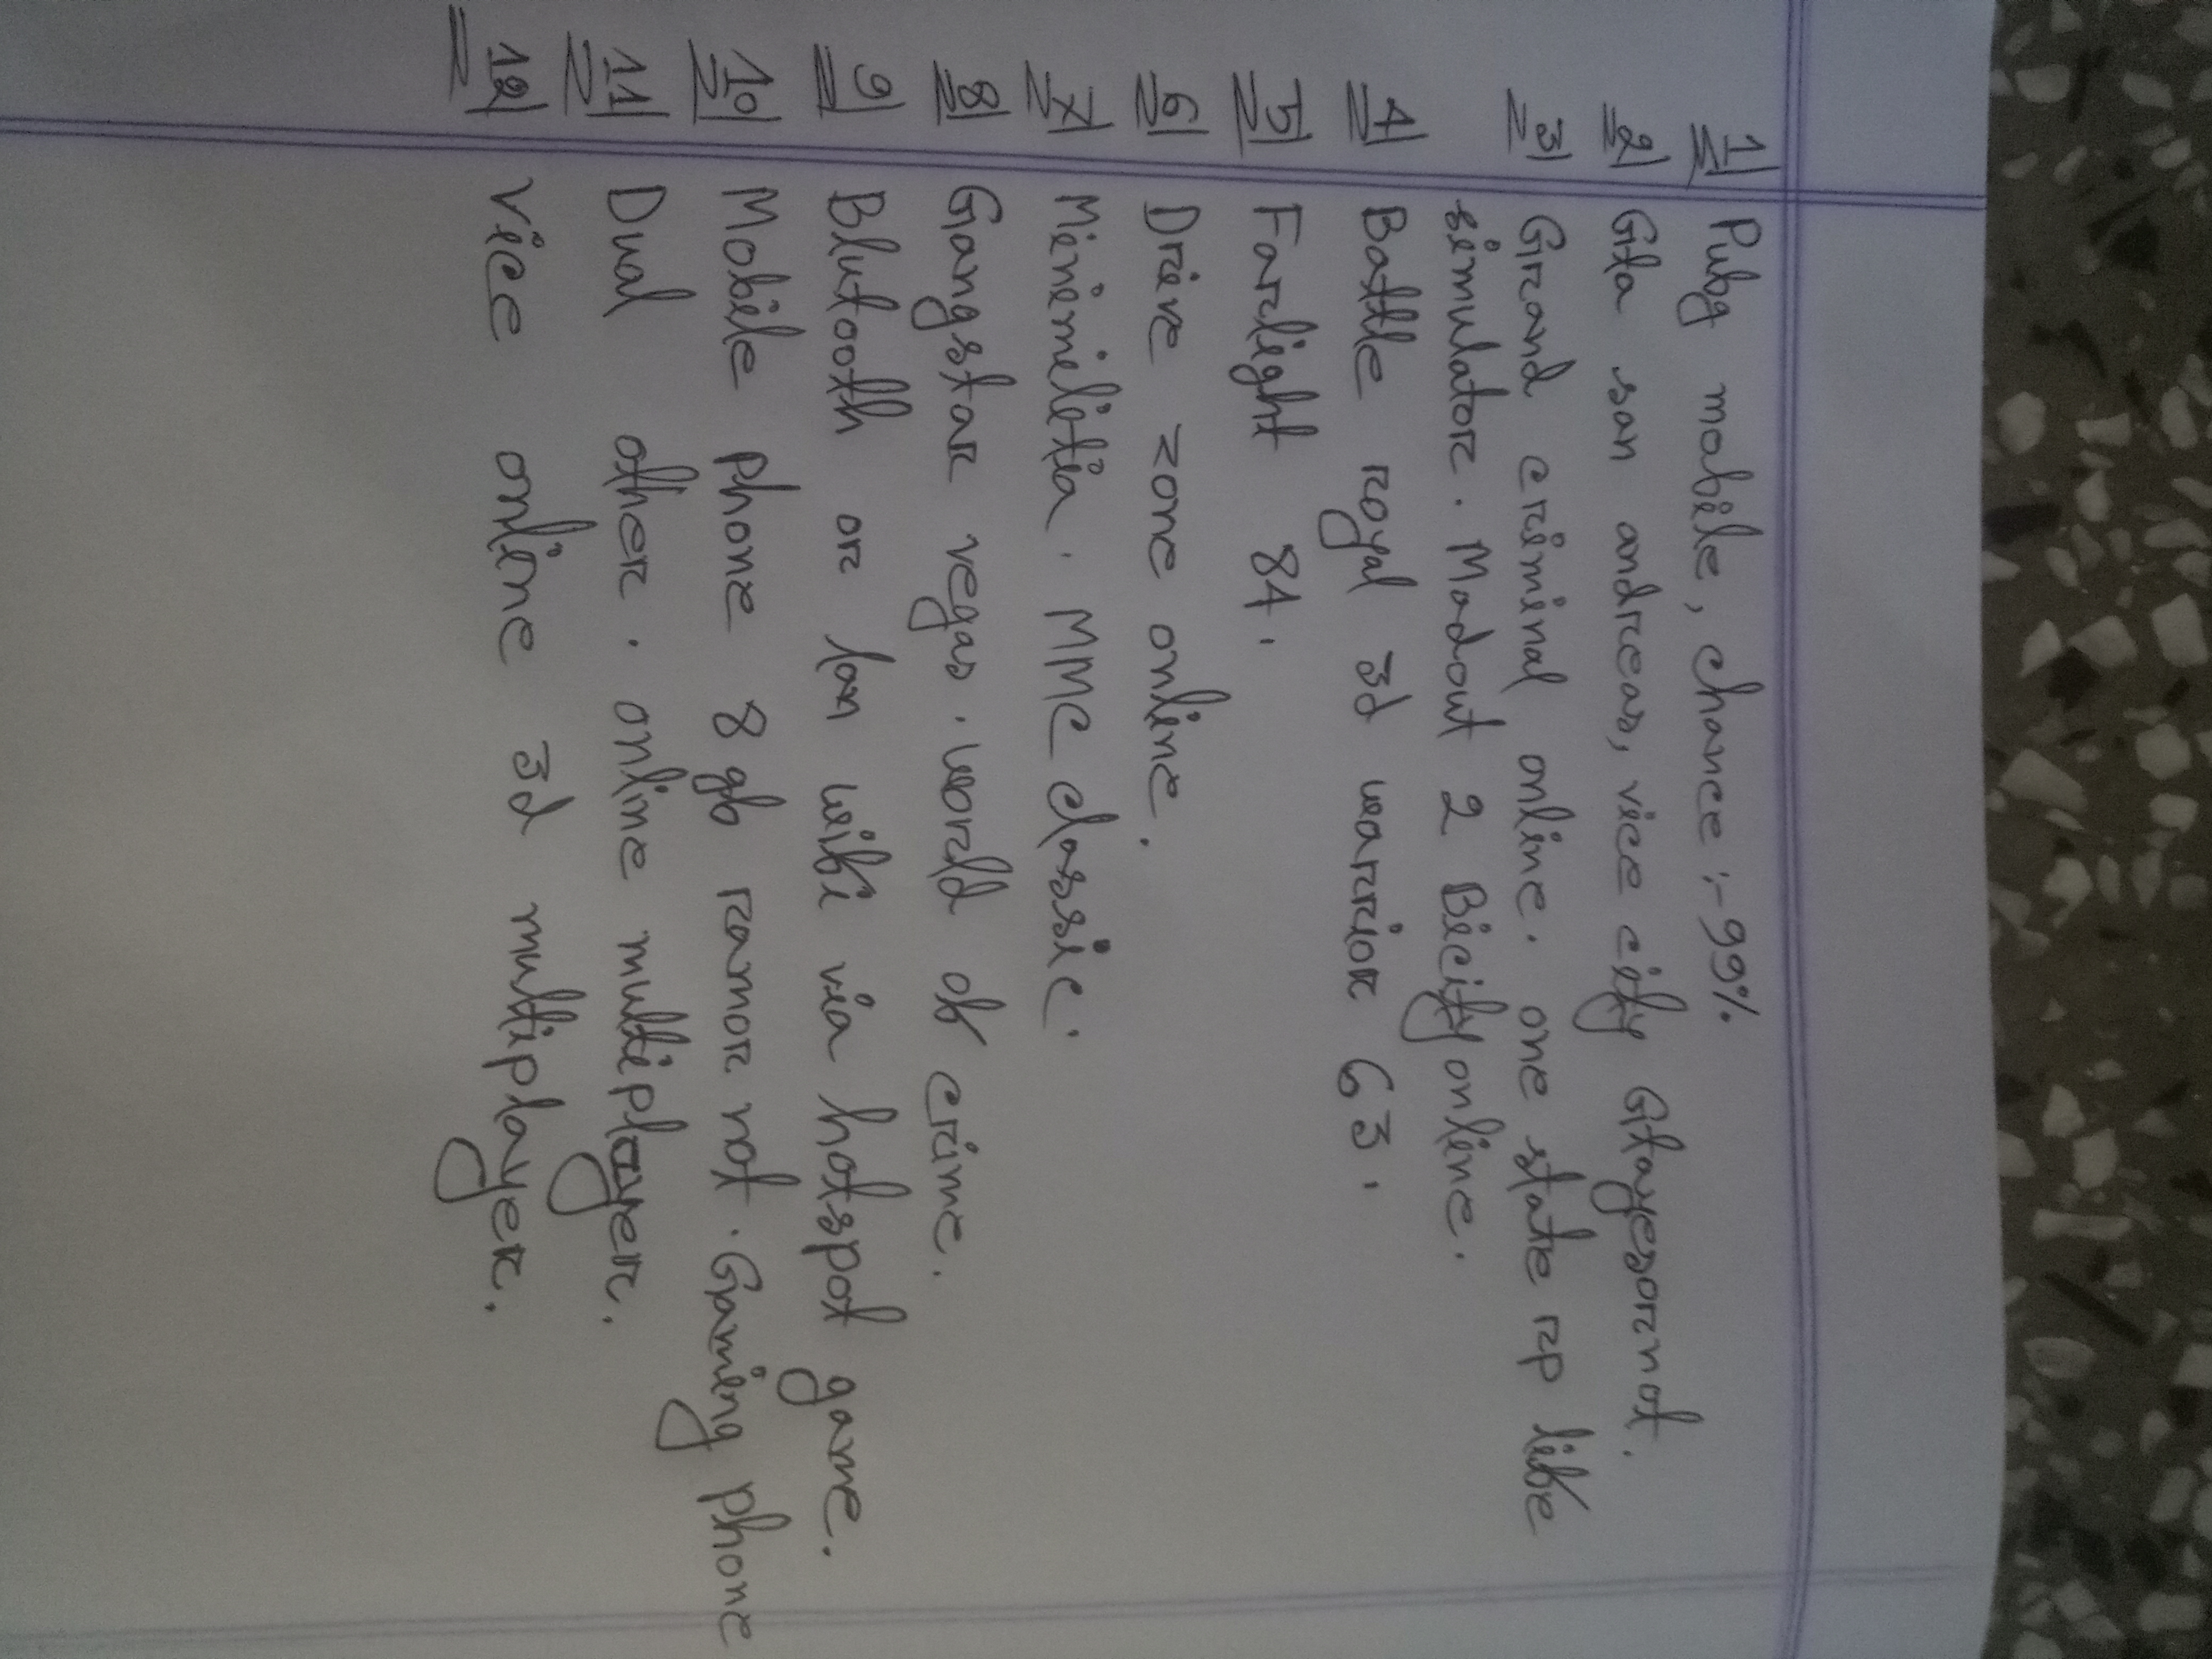 1 Pubg mobile, chance :- 99%.
2 Gta san andreas, vice city Gtayesornot.
3 Grand criminal online. one state rp life
simulator. Madout 2 Bicityonline.
4 Battle royal 3d warrior 63.
5 Farlight 84.
6 Drive zone online.
7 Minimilitia. MMC classic.
8 Gangstar vegas. world of crime.
9 Blutooth or lan wifi via hotspot game.
10 Mobile phone 8 gb ramor not. Gaming phone
11 Dual other. online multiplayer.
12 vice online 3d multiplayer.